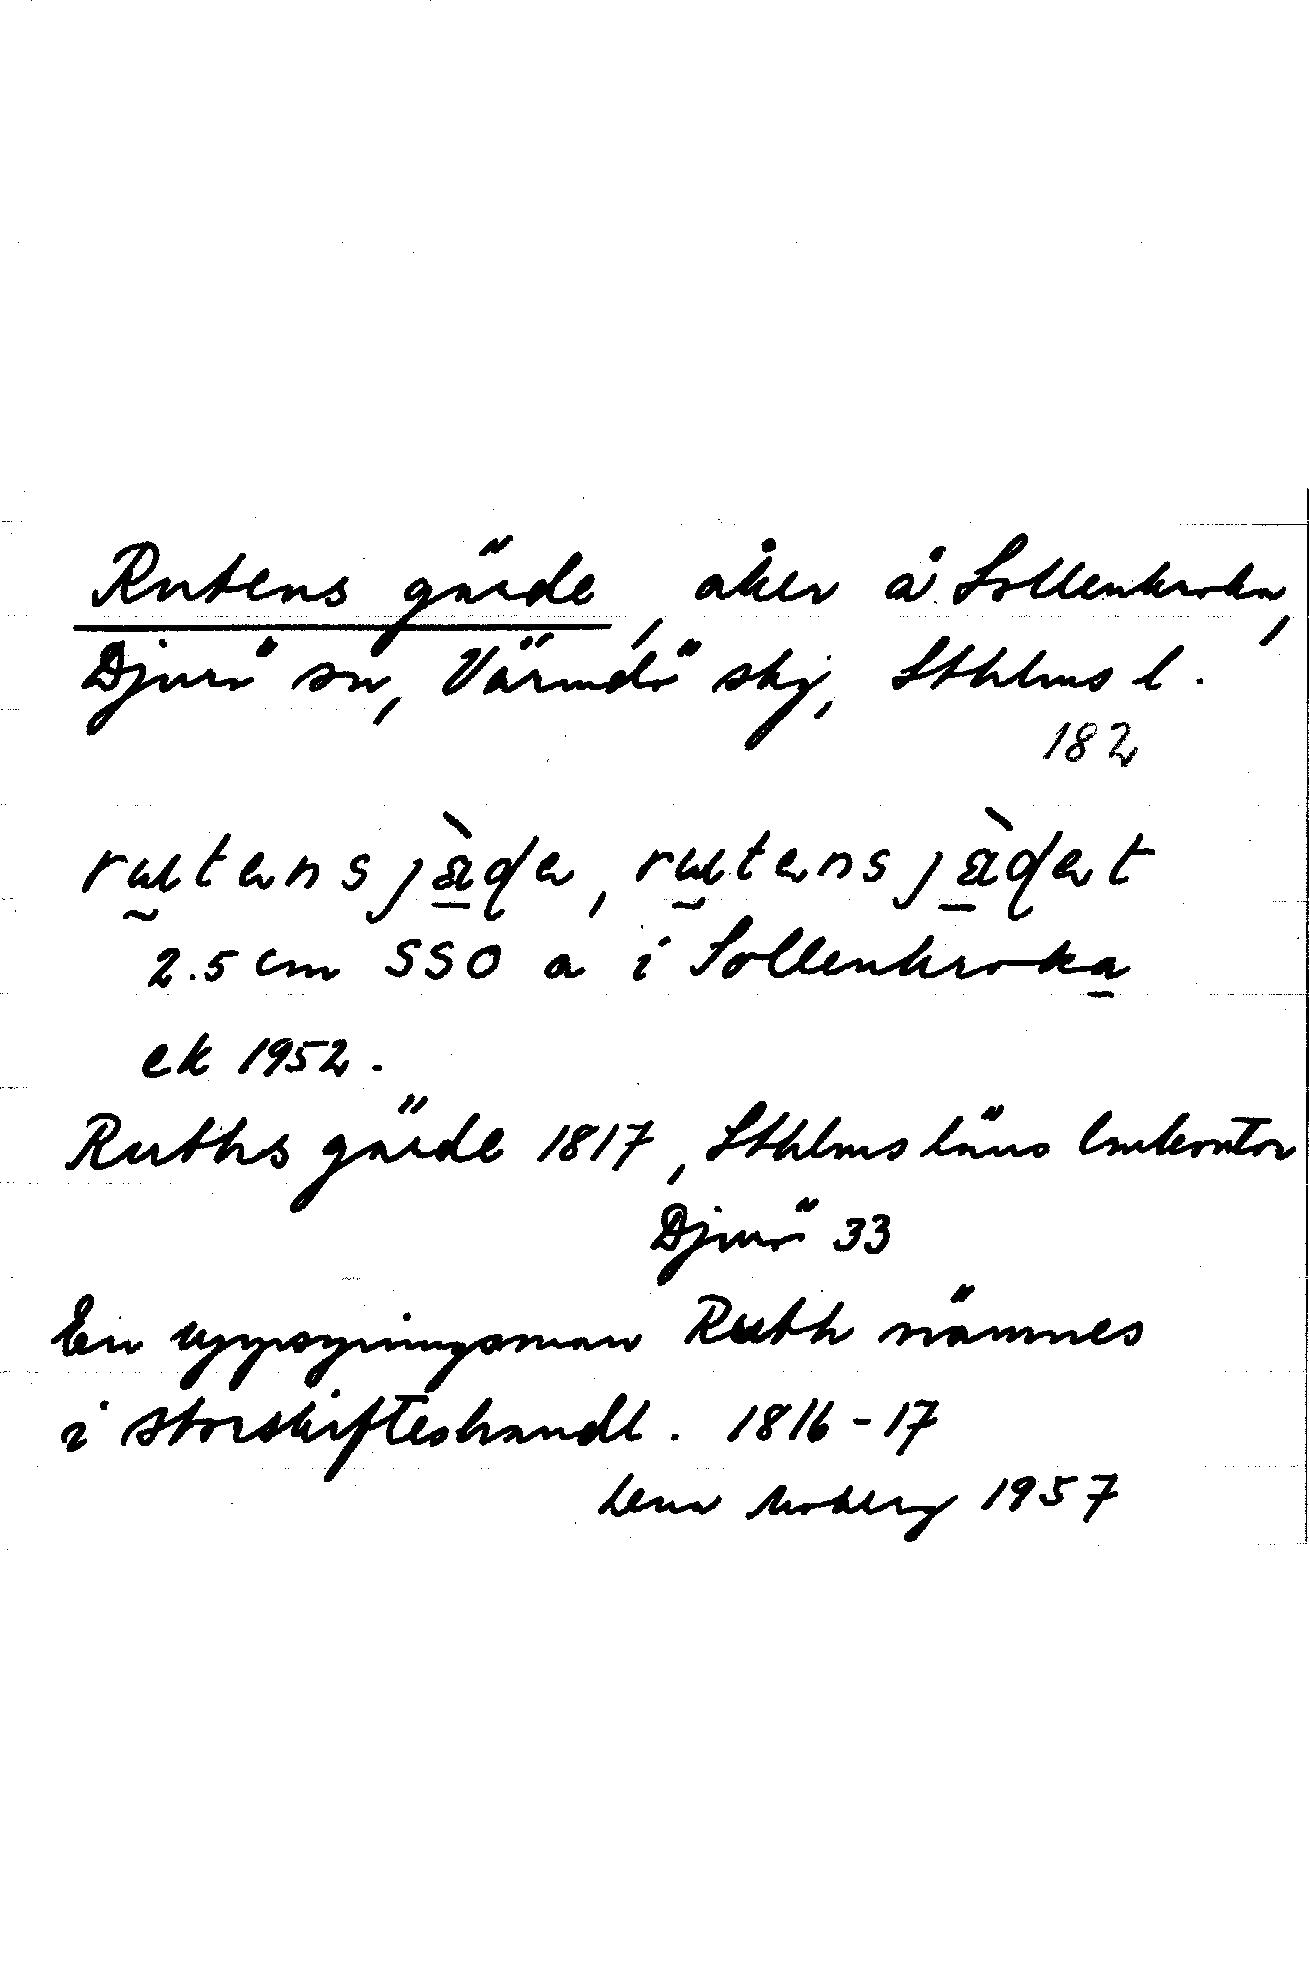 Rutens gärde, åker å Sollenkroka,
Djurö sn, Värmdö skg, Sthlms l.
182
rutens jàde, rutens jàdet
2.5 cm SSO a i Sollenkroka
ek 1952.
Ruths gärde 1817, Sthlms läns lmkontor
Djurö 33
En uppsyningsman Ruth nämnes
i storskifteshandl. 1816-17
Lena Moberg 1957